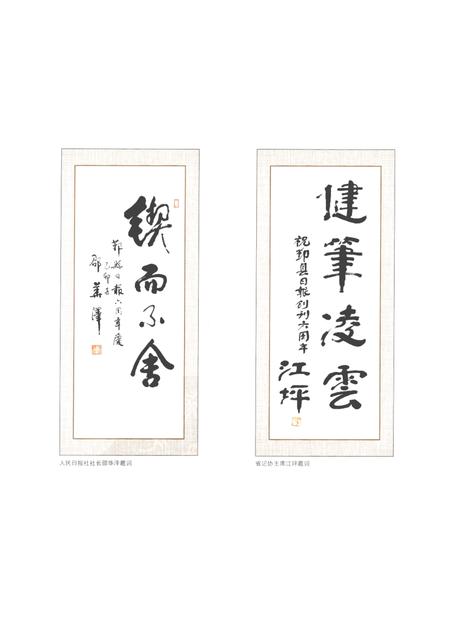 锲而不舍
鄞县日报六周年庆
己卯春
邵華澤
人民日报社社长邵华泽题词
健筆凌雲
祝鄞县日报创刊六周年
江坪
省记协主席江坪题词